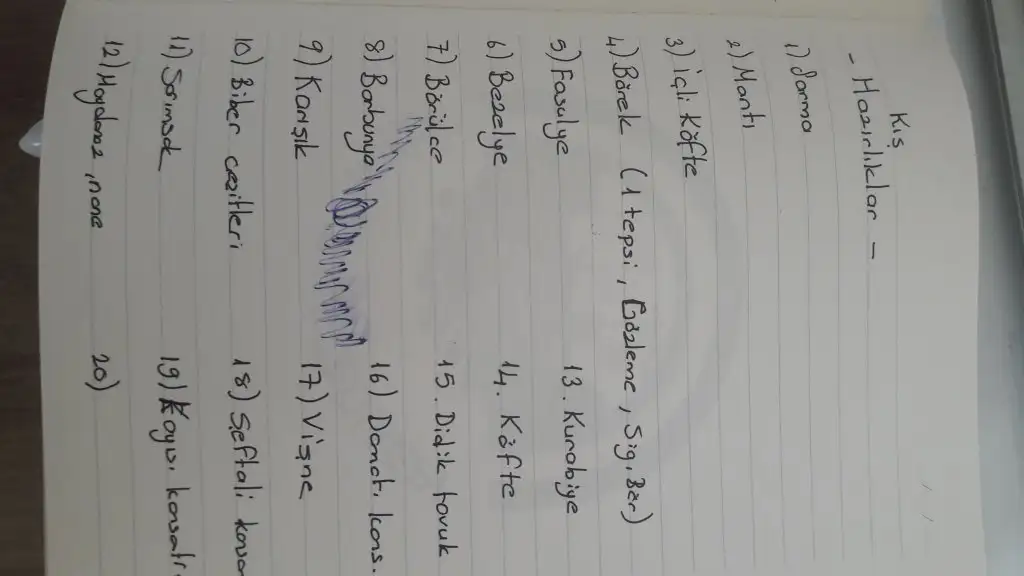 Kış
- Hazırlıklar -
1) Sarma
2) Mantı
3) İçli Köfte
4) Börek (1 tepsi, Gözleme, Sig. Ber)
5) Fasulye 13. Kurabiye
6) Bezelye 14. Köfte
7) Börülce 15. Didik tavuk
8) Barbunya 16) Domat. kons.
9) Karışık 17) Vişne
10) Biber çeşitleri 18) Şeftali
11) Sarımsak 19) Kayıs. konsatr.
12) Maydanoz, nane 20)